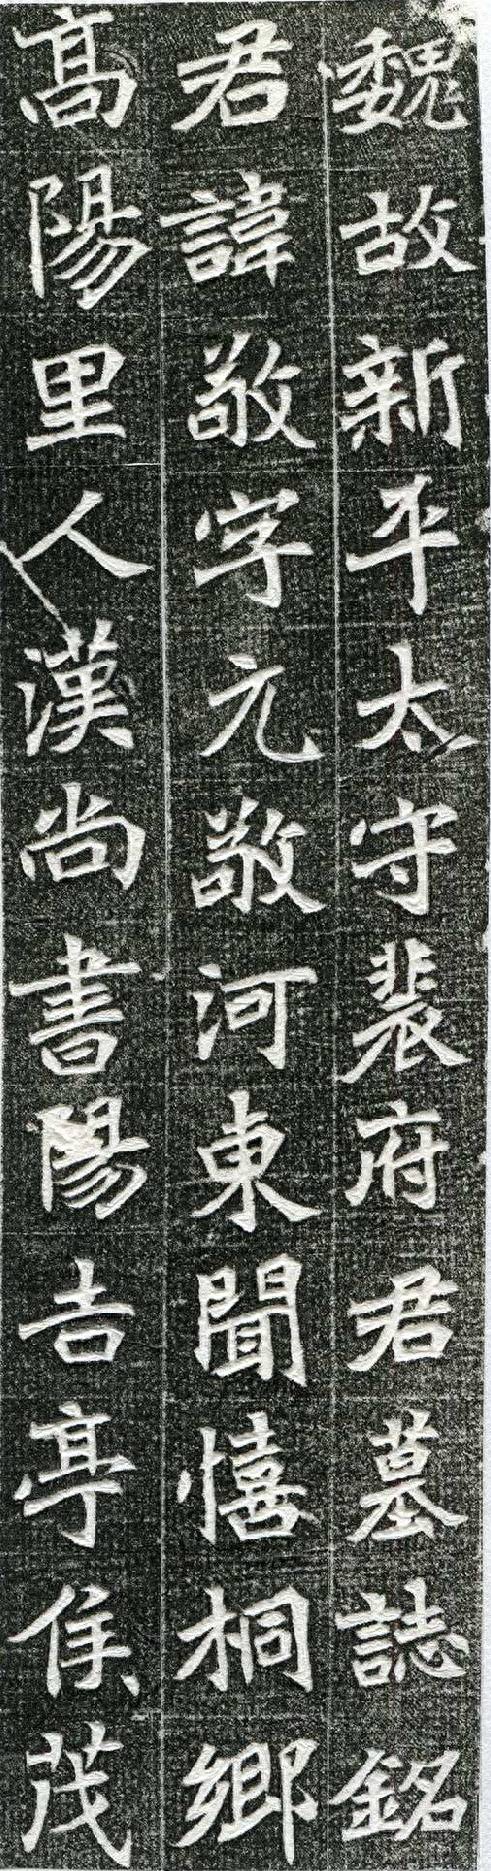 魏故新平太守裴府君墓誌銘
君諱敬字元敬河東聞憘桐鄉
高陽里人漢尚書陽吉亭侯茂